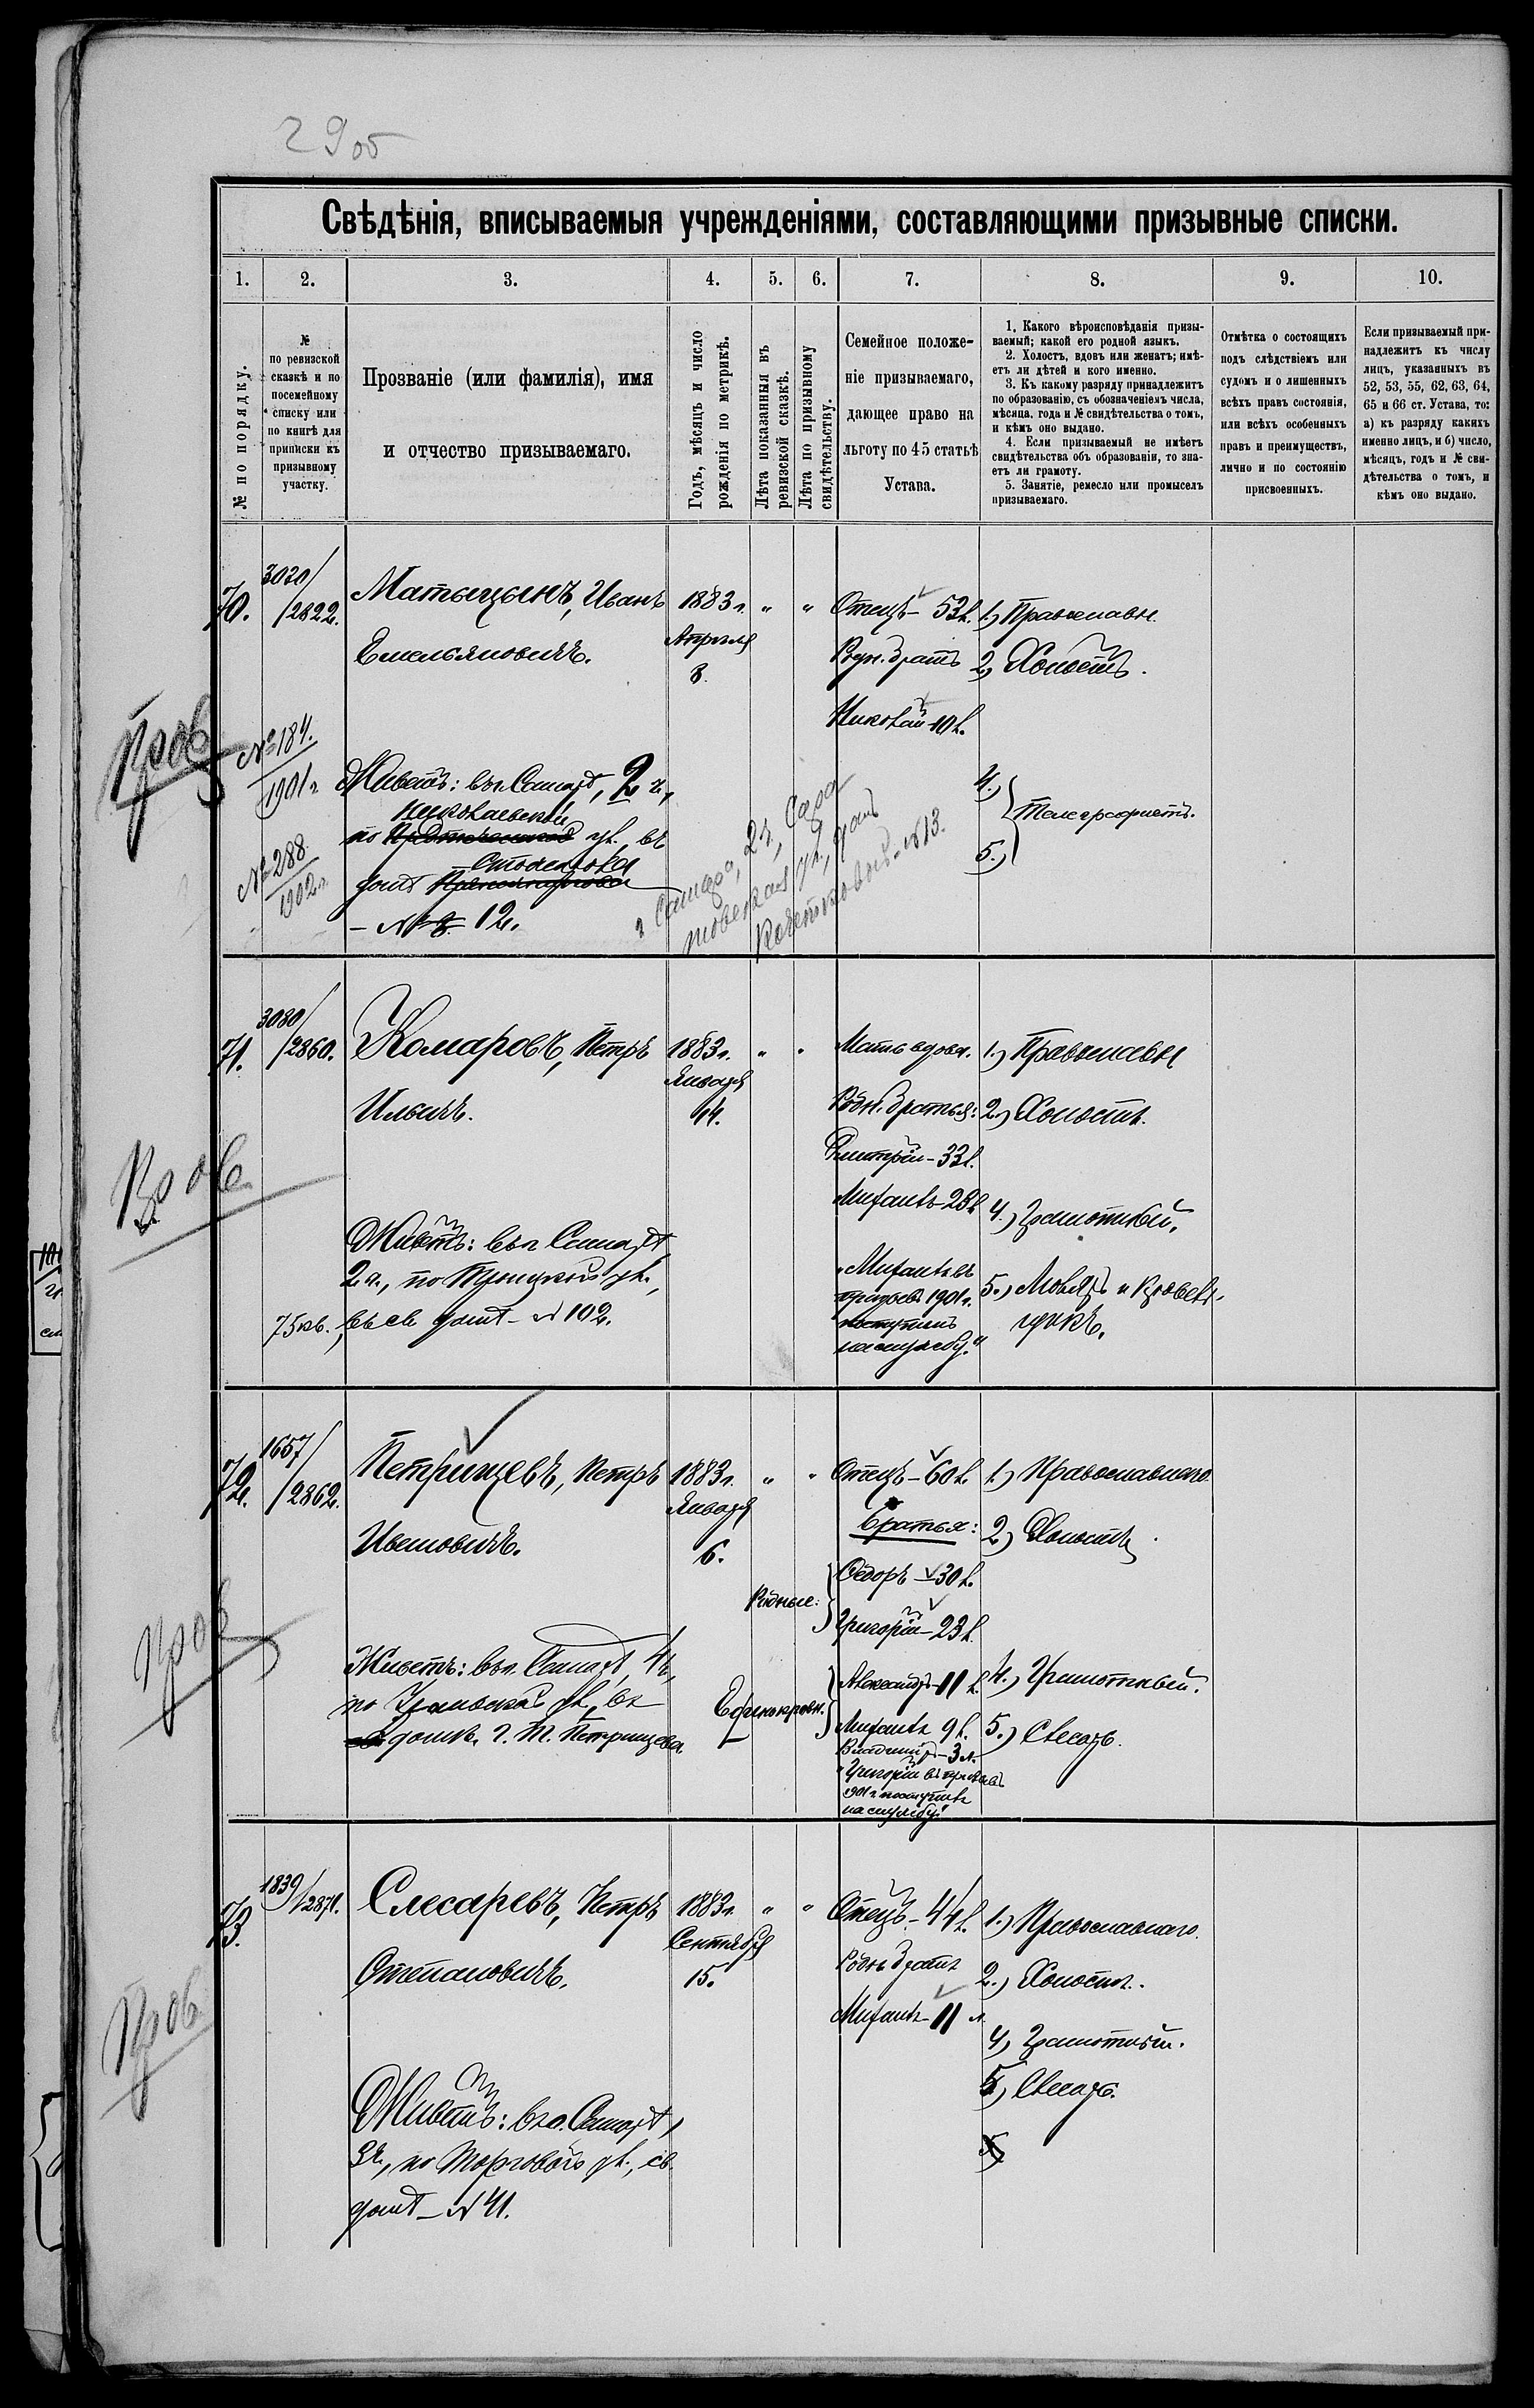 29 об
Свѣдѣнія, вписываемыя учрежденіями, составляющими призывные списки.
1. 2. 3. 4. 5. 6. 7. 8. 9. 10.
№ по порядку.
№
по ревизской
сказкѣ и по
посемейному
списку или
по книгѣ для
приписки къ
призывному
участку.
Прозваніе (или фамилія), имя
и отчество призываемаго.
Годъ, мѣсяцъ и число
рожденія по метрикѣ.
Лѣта показанныя въ
ревизской сказкѣ.
Лѣта по призывному
свидѣтельству.
Семейное положе-
ніе призываемаго,
дающее право на
льготу по 45 статьѣ
Устава.
1. Какого вѣроисповѣданія призы-
ваемый; какой его родной языкъ.
2. Холостъ, вдовъ или женатъ; имѣ-
етъ ли дѣтей и кого именно.
3. Къ какому разряду принадлежитъ
по образованію, съ обозначеніемъ числа,
мѣсяца, года и № свидѣтельства о томъ,
и кѣмъ оно выдано.
4. Если призываемый не имѣетъ
свидѣтельства объ образованіи, то зна-
етъ ли грамоту.
5. Занятіе, ремесло или промыселъ
призываемаго.
Отмѣтка о состоящихъ
подъ слѣдствіемъ или
судомъ и о лишенныхъ
всѣхъ правъ состоянія,
или всѣхъ особенныхъ
правъ и преимуществъ,
лично и по состоянію
присвоенныхъ.
Если призываемый при-
надлежитъ къ числу
лицъ, указанныхъ въ
52, 53, 55, 62, 63, 64,
65 и 66 ст. Устава, то:
а) къ разряду какихъ
именно лицъ, и б) число,
мѣсяцъ, годъ и № сви-
дѣтельства о томъ, и
кѣмъ оно выдано.
70.
3020/
/2822.
Матыцынъ, Иванъ
Емельяновичъ.
1883 г.
Апрѣля
8.
" "
Отецъ - 53 л.
Родн. братъ
Николай - 10 л.
1.) Православн.
2.) Холостъ.
4.)
Телеграфистъ.
5.)
Пров
№ 184.
1901 г.
№ 288
1902 г.
Живетъ: въ г. Самарѣ, 2 ч.,
Николаевской
по ул., въ
домѣ
- № 12.
г. Самара, 2 ч., Сара
товская ул., домъ
№ 13.
71.
3080/
/2860.
Комаровъ, Петръ
Ильичъ.
1883 г.
Января
14.
" "
Мать вдова.
Родн. братья:
Дмитрій - 33 л.
Михаилъ - 23 л.
"Михаилъ въ
призывъ 1901 г.
поступилъ
на службу."
1.) Православн
2.) Холостъ.
4.) Грамотный.
5.) Маляръ и кровель-
щикъ.
Пров
Живетъ: въ г. Самарѣ,
2 ч., по Троицкой ул.,
75 кв., въ св. домѣ - № 102.
72.
1657/
/2862.
Петрищевъ, Петръ
Ивановичъ.
1883 г.
Января
6.
" "
Отецъ - 60 л.
Братья:
Родные:
Ѳедоръ - 30 л.
Григорій - 23 л.
Единокровн.
Александръ - 11 л.
Михаилъ 9 л.
Владиміръ - 3 л.
"Григорій въ призывъ
1901 г. поступилъ
на службу."
1.) Православнаго
2.) Холостъ
4.) Грамотный.
5.) Слесарь.
Пров
Живетъ: въ г. Самарѣ, 4 ч.,
по Уральской ул., въ
домѣ. Петрищева.
73.
1839/
/2871.
Слесаревъ, Петръ
Степановичъ.
1883 г.
Сентября
15.
" "
Отецъ - 44 л.
Родн. братъ
Михаилъ - 11 л.
1.) Православнаго.
2.) Холостъ.
4.) Грамотный.
5.) Слесарь.
5)
Пров
Живетъ: въ г. Самарѣ,
3 ч., по Торговой ул., св.
домѣ - № 41.